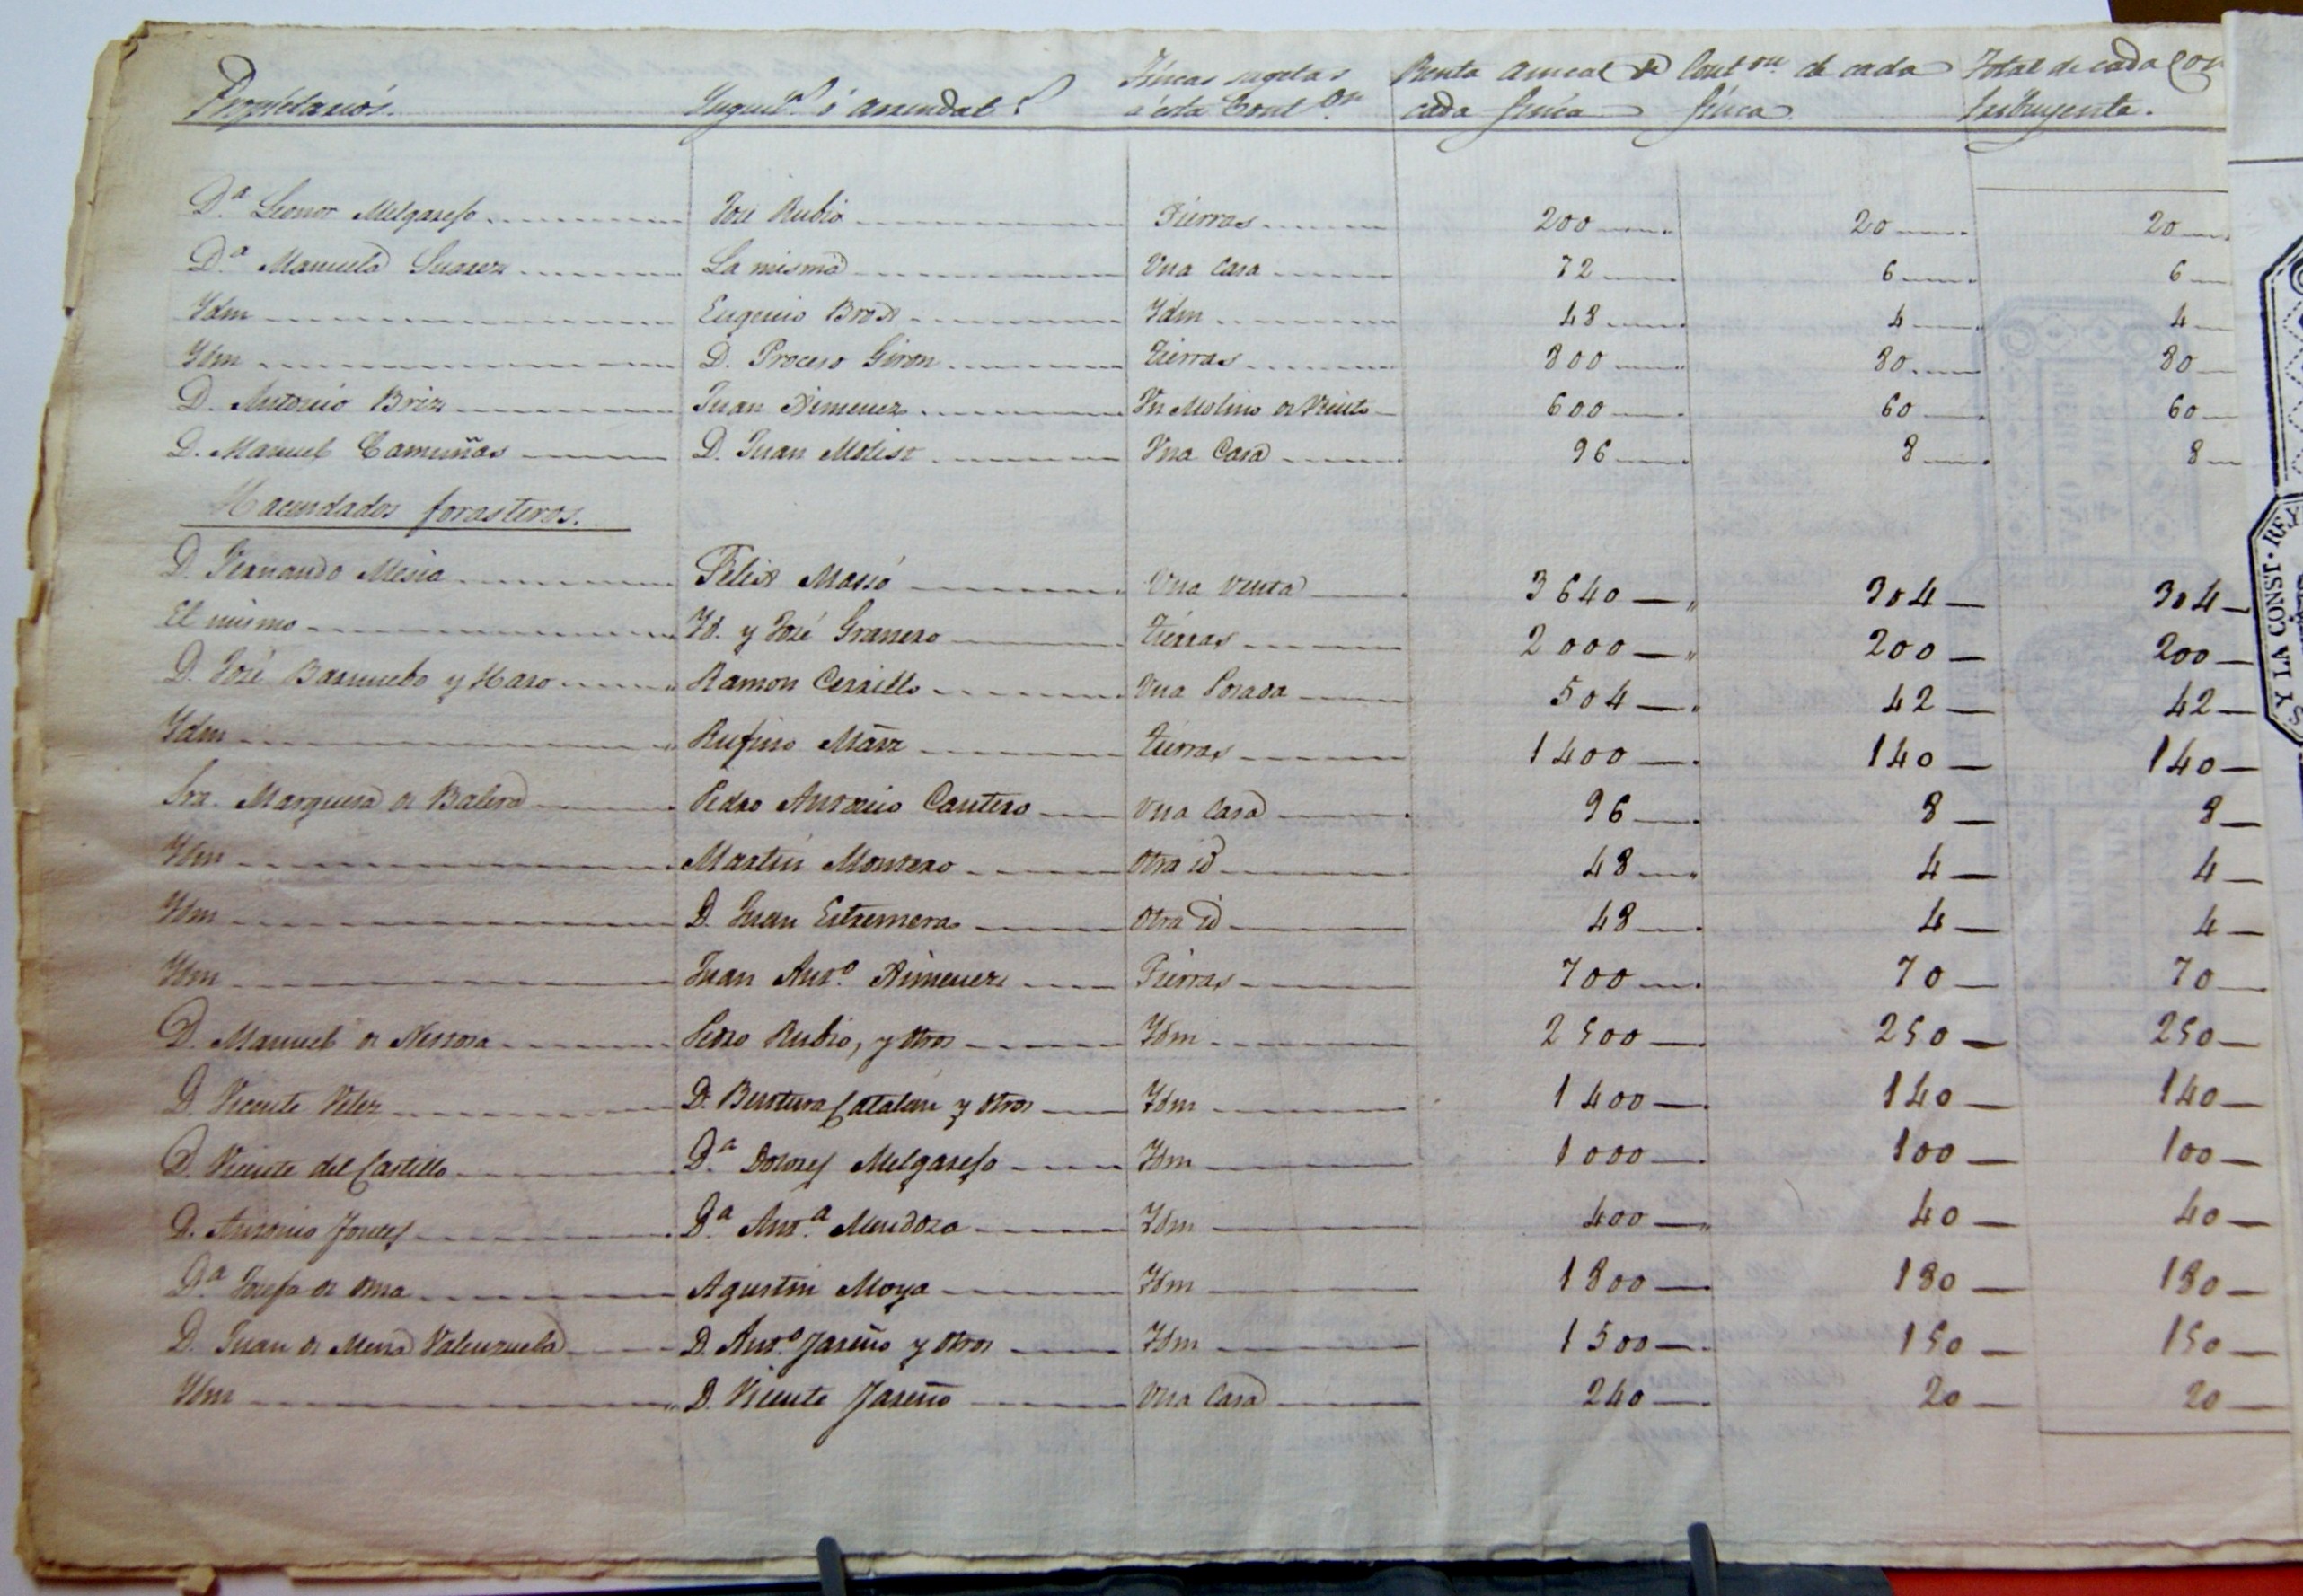 Propietarios. Inquil.s ó arrendat.s Fincas sugetas Renta anual de Cont.on de cada Total de cada Con
á esta Cont.on cada finca finca. tribuyente.
D.a Leonor Melgarejo José Rubio Tierras 200 20 20
D.a Manuela Suarez La misma Una Casa 72 6 6
Ydm Eugenio Brox Ydm 48 4 4
Ydm D. Proceso Giron tierras 800 80 80
D. Antonio Briz Juan Ximenez Un Molino de Viento 600 60 60
D. Manuel Camuñas D. Juan Molist Una Casa 96 8 8
Hacendados forasteros.
D. Fernando Mesia Felix Massó Una Venta 3640 304 304
El mismo Yd. y José Granero tierras 2000 200 200
D. José Barnuebo y Haro Ramon Cerrillo Una Posada 504 42 42
Ydm Rufino Márz tierras 1400 140 140
Sra. Marquesa de Balera Pedro Antonio Cantero Una Casa 96 8 8
Ydm Martin Montero Otra id 48 4 4
Ydm D. Juan Estremera Otra id 48 4 4
Ydm Juan Ant.o Ximenez Tierras 700 70 70
D. Manuel de Pedro Rubio, y otros Ydm 2500 250 250
D. Vicente Velez D. Bentura Catalan y otros Ydm 1400 140 140
D. Vicente del Castillo D.a Dolores Melgarejo Ydm 1000 100 100
D. Antonio Fontes D.a Ant.a Mendoza Ydm 400 40 40
D.a Josefa de Agustin Moya Ydm 1800 180 180
D. Juan de Mena Valenzuela D. Ant.o Jareño y otros Ydm 1500 150 150
Ydm D. Vicente Jareño Una Casa 240 20 20
S Y LA CONST. REY